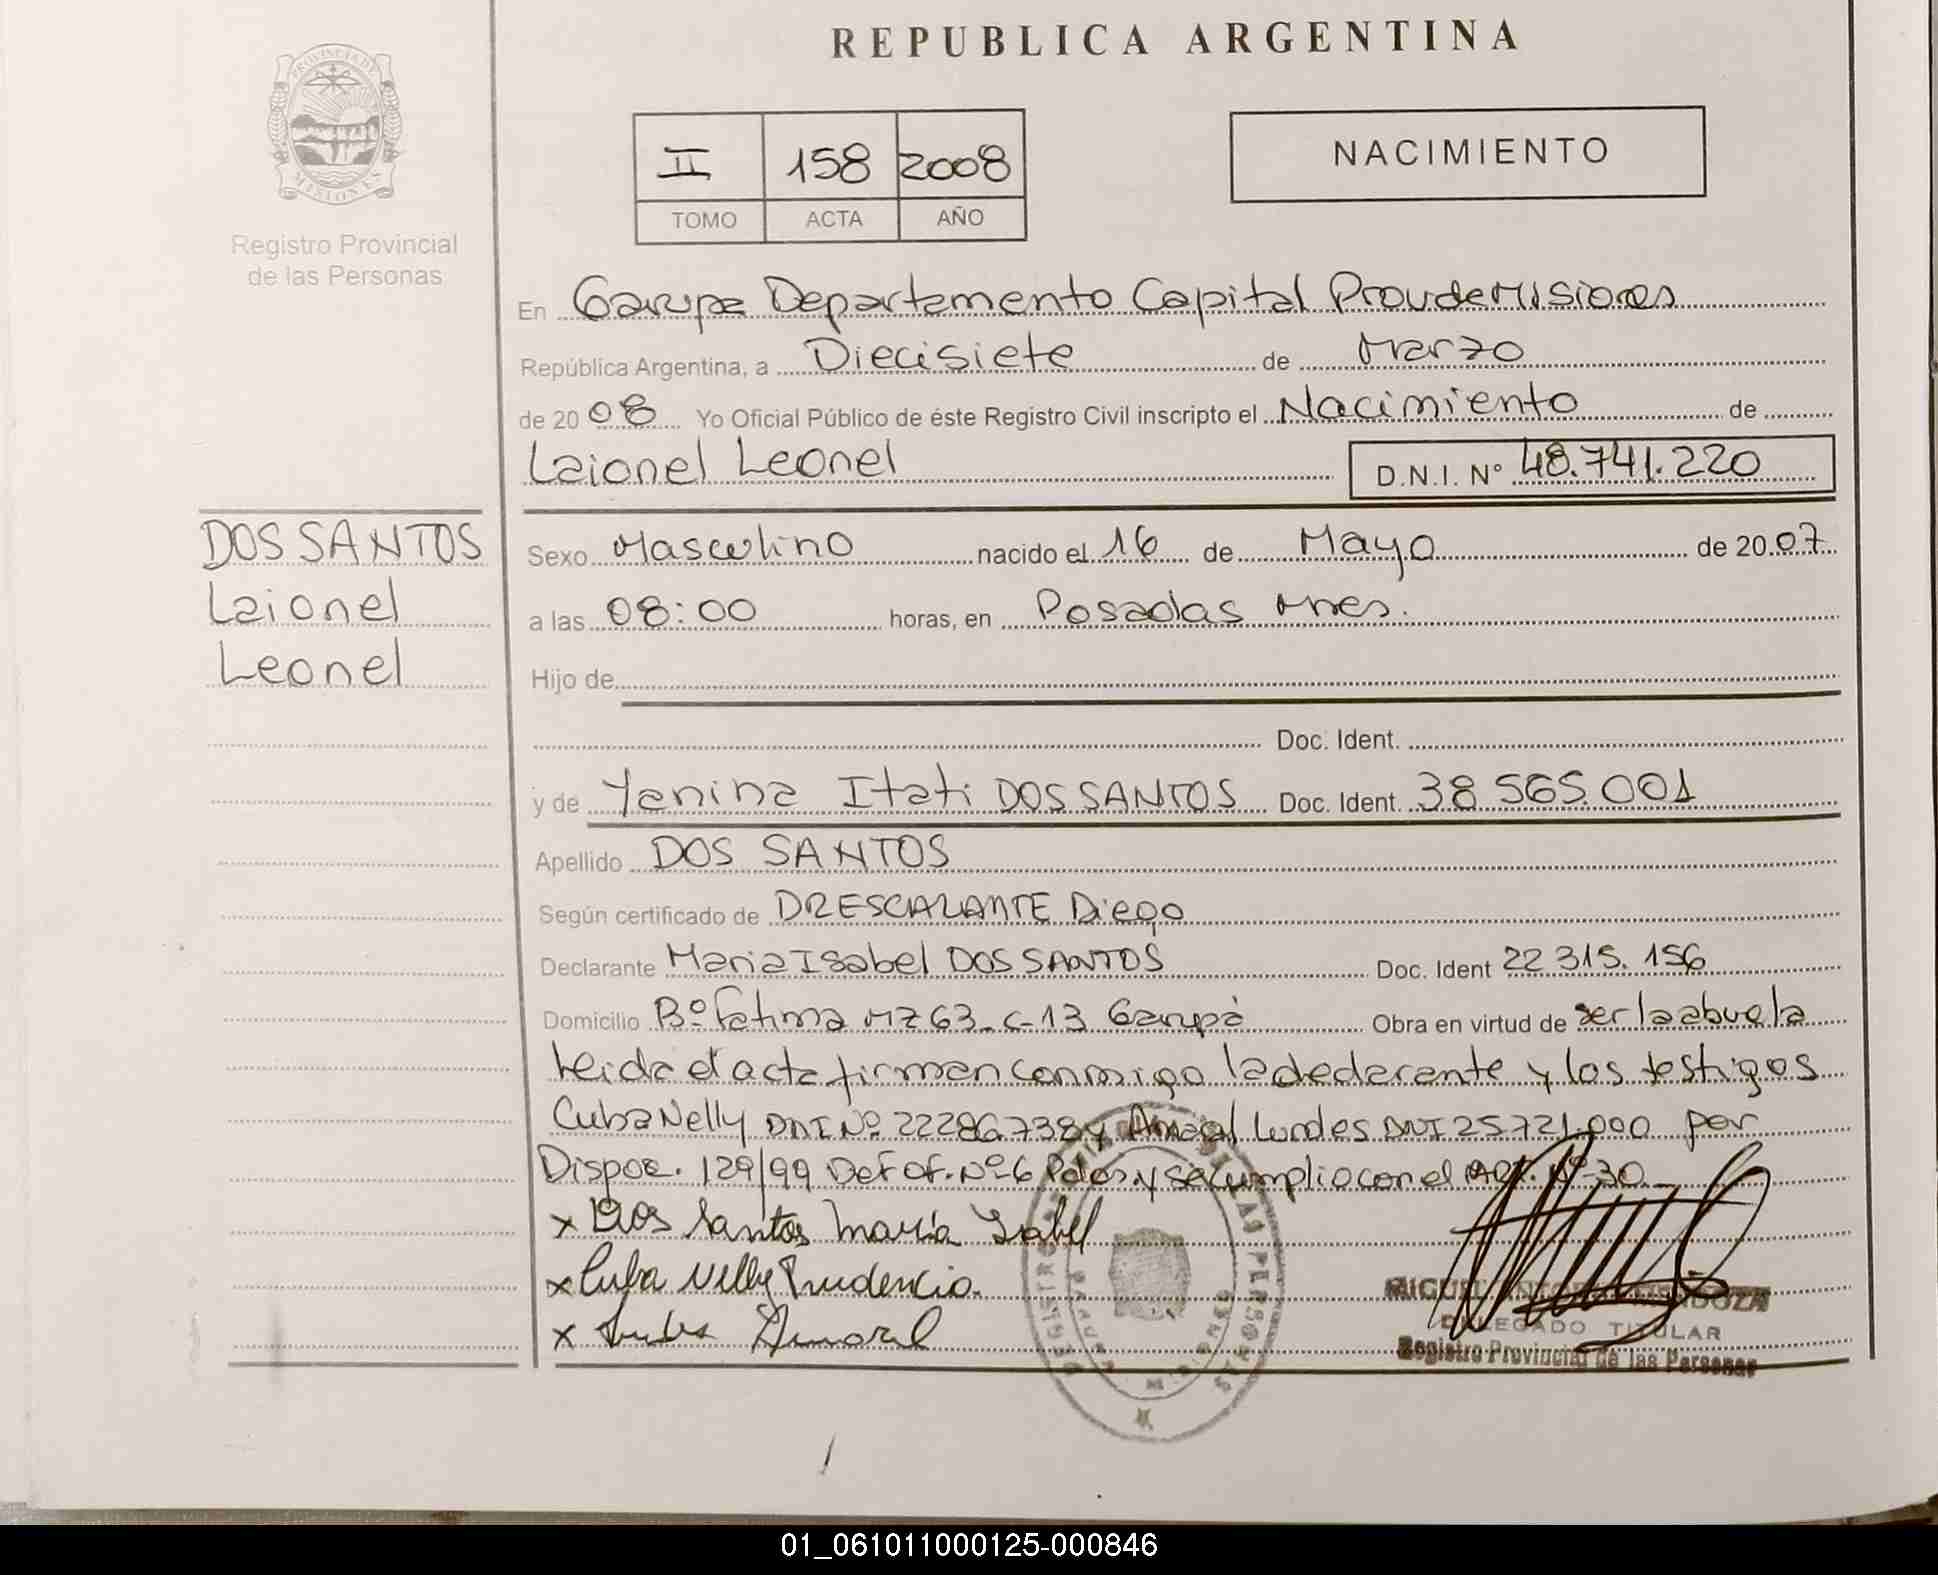 REPUBLICA ARGENTINA
PROVINCIA DE
MISIONES
Registro Provincial
de las Personas
II 158 2008
TOMO ACTA AÑO
NACIMIENTO
En Garupa Departamento Capital Prov de Misiones
República Argentina, a Diecisiete de Marzo
de 20 08 Yo Oficial Público de éste Registro Civil inscripto el Nacimiento de
Laionel Leonel D.N.I. Nº 48.741.220
DOS SANTOS
Laionel
Leonel
Sexo Masculino nacido el 16 de Mayo de 20 07
a las 08:00 horas, en Posadas Mnes.
Hijo de
Doc. Ident.
y de Yanina Itati DOS SANTOS Doc. Ident. 38 565.001
Apellido DOS SANTOS
Según certificado de DR ESCALANTE Diego
Declarante Maria Isabel DOS SANTOS Doc. Ident 22 315.156
Domicilio Bº Fatima MZ 63 - C-13 Garupá Obra en virtud de ser la abuela
Leida el acta firman conmigo la declarante y los testigos
Cuba Nelly DNI Nº 22286738 y Amaral Lurdes DNI 25721.000 por
Dispos. 129/99 Def of. Nº 6 Pdas. y se cumplio con el ART. Nº 30
x Dos Santos María Isabel
x Cuba Nelly Prudencia
x Lurdes Amaral
MIGUEL ANTONIO MENDOZA
DELEGADO TITULAR
Registro Provincial de las Personas
01_061011000125-000846